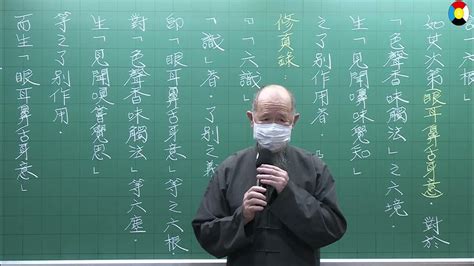 如其次第「眼耳鼻舌身意」對於
「色聲香味觸法」之六境.
「見聞嗅味覺知」
之了別作用者.
修頁
「六識」
「識」者.了別之義.
即「眼耳鼻舌身意」等之六根.
對「色聲香味觸法」等六塵.
而生「見聞嗅嘗覺思」
等之了別作用.
而生「眼耳鼻舌身意」